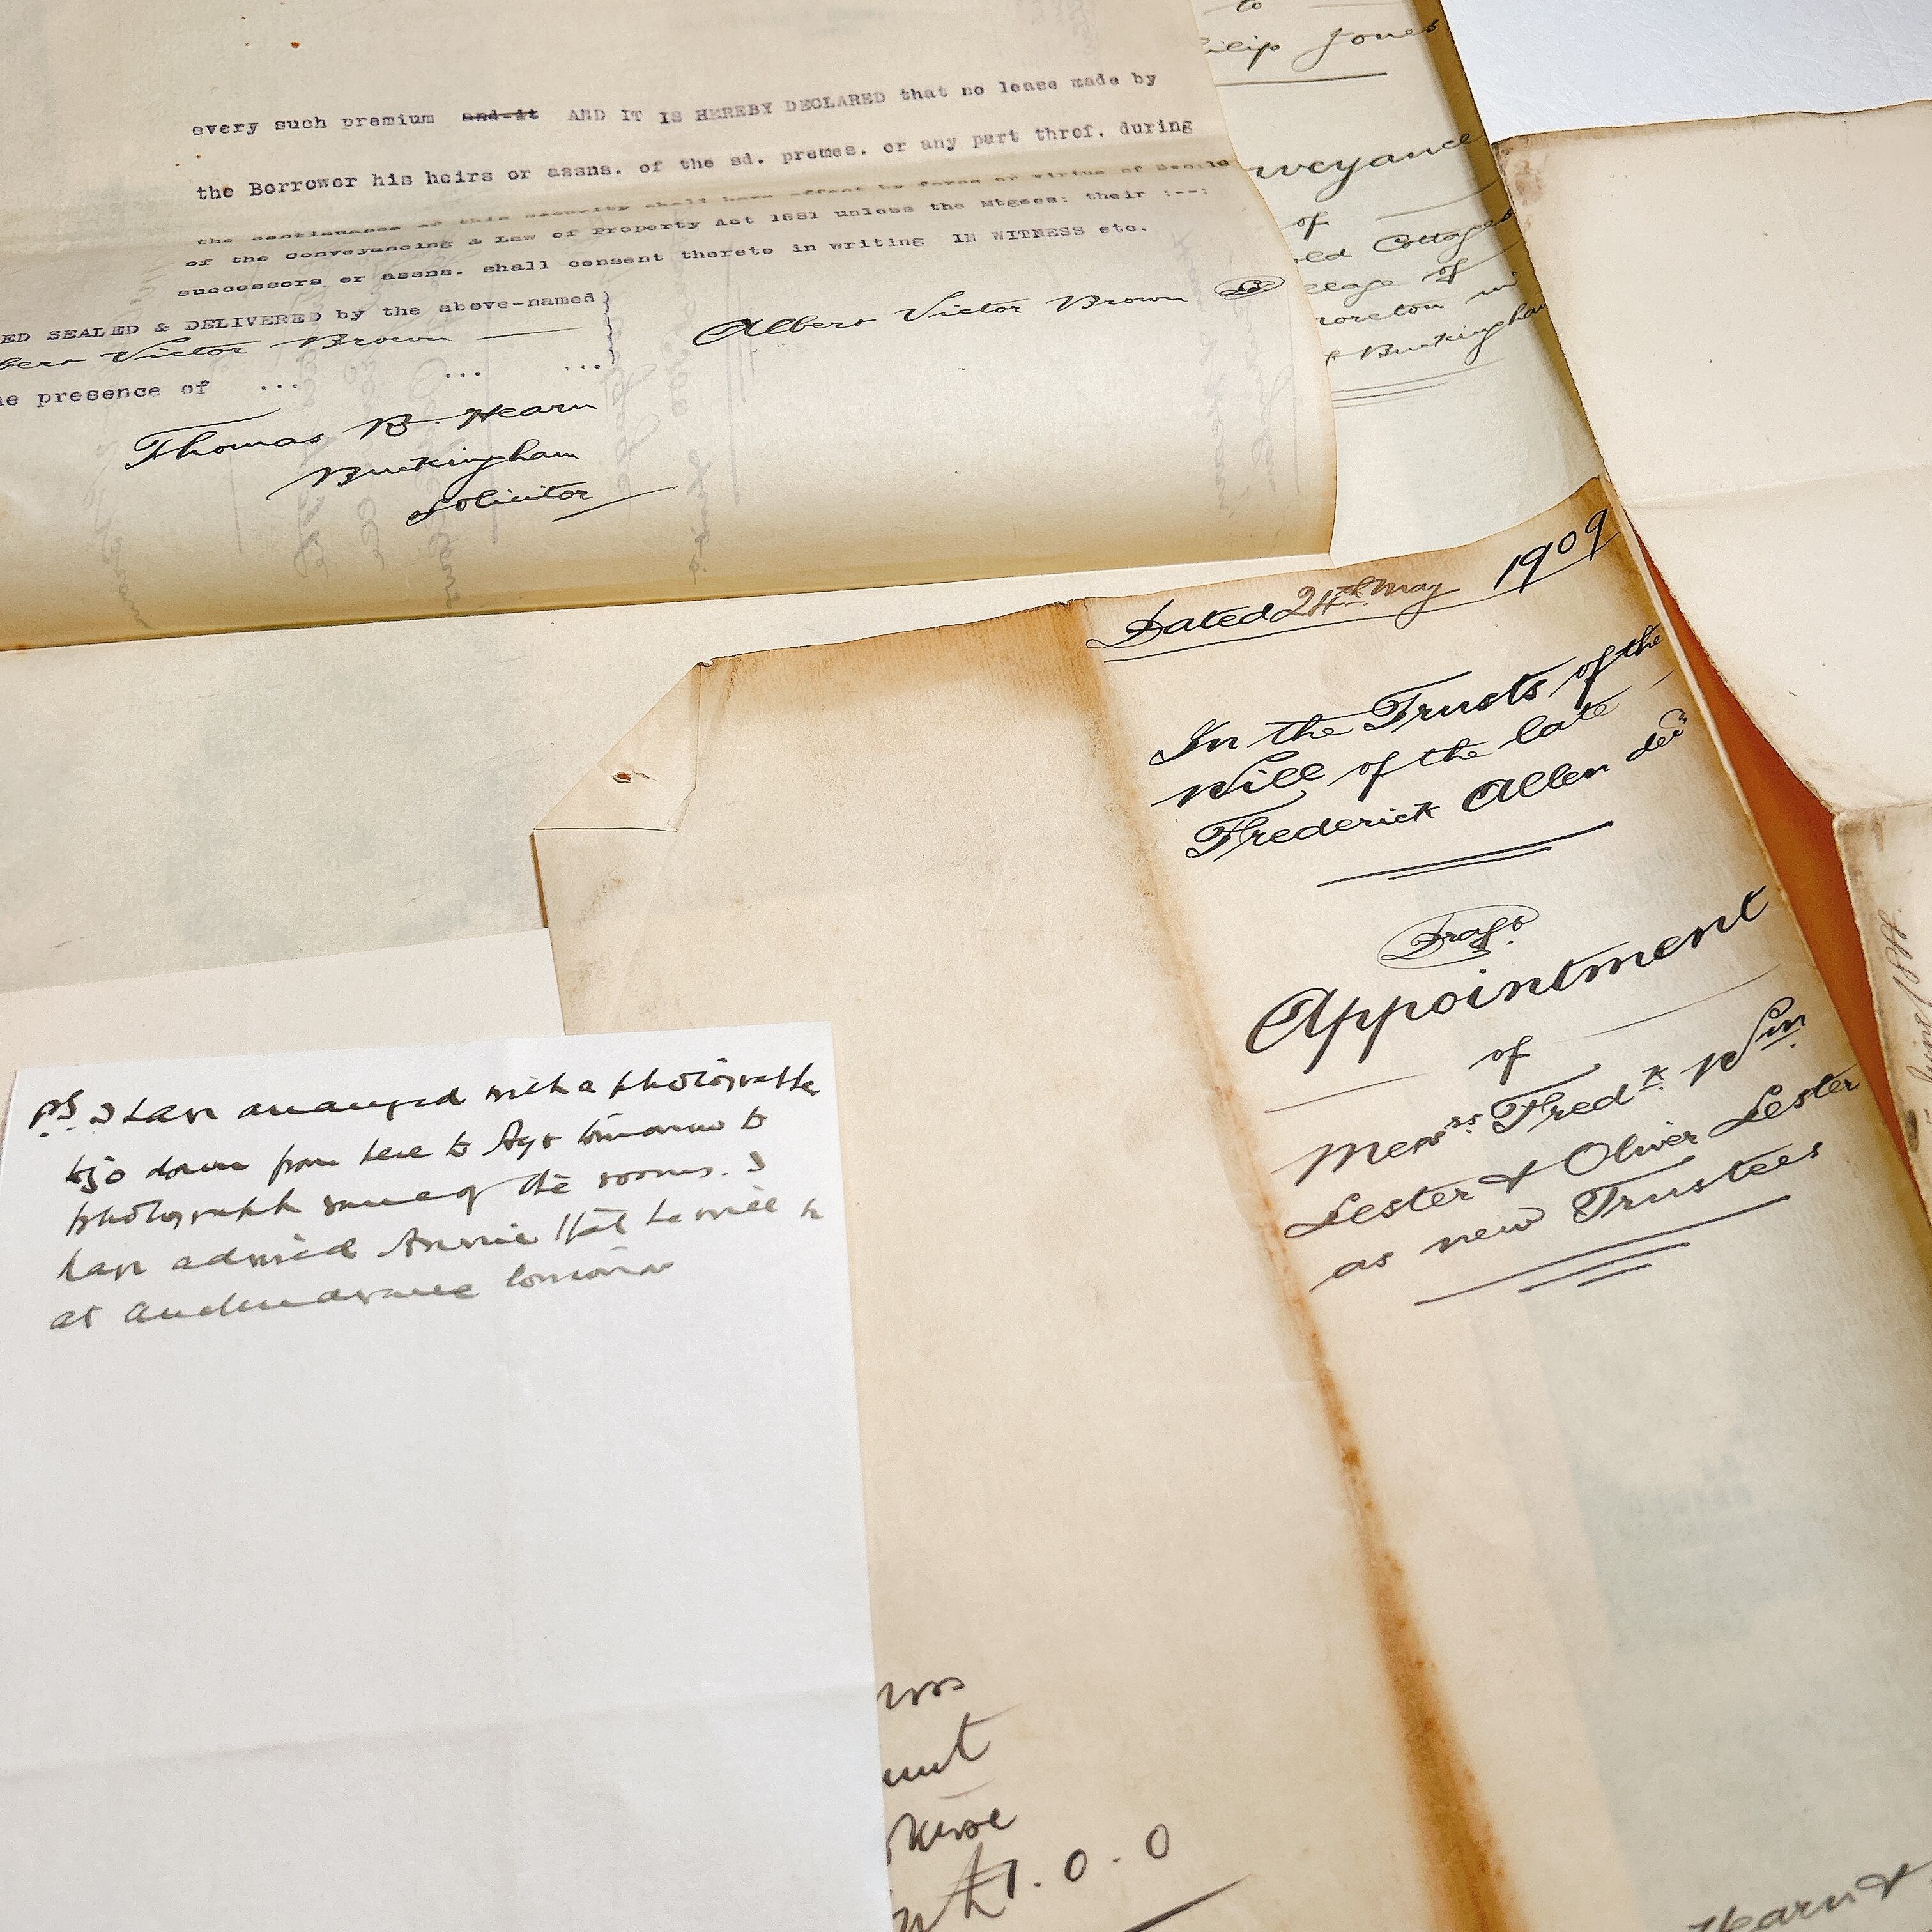 every such premium and it AND IT IS HEREBY DECLARED that no lease made by
the Borrower his heirs or assns. of the sd. premes. or any part throf. during
the continuance of this security shall have effect by force or virtue of
of the Conveyancing & Law of Property Act 1881 unless the Mtgees: their :--:
successors or assns. shall consent thereto in writing IN WITNESS etc.
ED SEALED & DELIVERED by the above-named)
bert Victor Brown
he presence of ... ... ...
Albert Victor Brown
Thomas B. Hearn
Buckingham
Solicitor
to
ilip Jones
nveyance
of
old Cottages
of
oreton in
Buckingham
Dated 24th May 1909
In the Trusts of the
Will of the late
Frederick Allen decd
Draft
Appointment
of
Messrs Fredk Wm
Lester & Oliver Lester
as new Trustees
PS. I have arranged with a photographer
to go down from here to Ayr tomorrow to
photograph some of the rooms. I
have advised Annie that he will be
at tomorrow
1.0.0
Hearn &